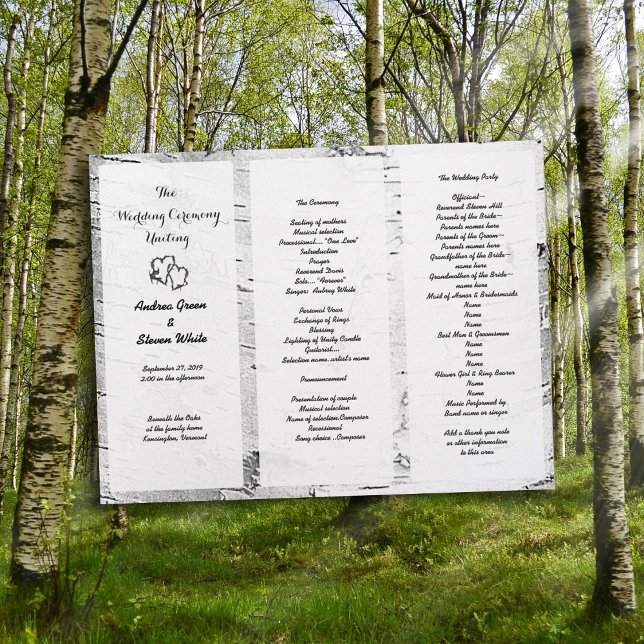 The
Wedding Ceremony
Uniting
Andrea Green
&
Steven White
September 27, 2019
2:00 in the afternoon
Beneath the Oaks
at the family home
Kensington, Vermont
The Ceremony
Seating of mothers
Musical selection
Processional...."One Love"
Introduction
Prayer
Reverend Davis
Solo...."Forever"
Singer: Aubrey White
Personal Vows
Exchange of Rings
Blessing
Lighting of Unity Candle
Guitarist....
Selection name..artist's name
Pronouncement
Presentation of couple
Musical selection
Name of selection..Composer
Recessional
Song choice ..Composer
The Wedding Party
Officiant~
Reverend Steven Hill
Parents of the Bride~
Parents names here
Parents of the Groom~
Parents names here
Grandfather of the Bride~
name here
Grandmother of the Bride~
name here
Maid of Honor & Bridesmaids
Name
Name
Name
Best Man & Groomsmen
Name
Name
Name
Flower Girl & Ring Bearer
Name
Name
Music Performed by
Band name or singer
Add a thank you note
or other information
to this area